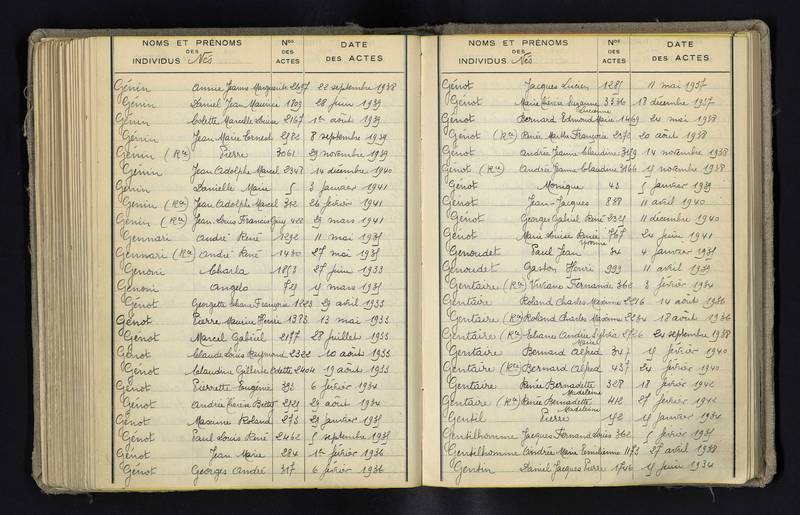 NOMS ET PRÉNOMS
DES
INDIVIDUS Nés
Nos
DES
ACTES
DATE
DES ACTES
Génin Annie Jeanne Marguerite 2657 22 septembre 1938
Génin Daniel Jean Maurice 1809 28 juin 1939
Génin Colette Marcelle Louise 2167 1er août 1939
Génin Jean Marie Ernest 2982 8 septembre 1939
Génin (Rn) Pierre 3061 29 novembre 1939
Génin Jean Adolphe Marcel 2348 14 décembre 1940
Génin Danielle Marie 5 3 janvier 1941
Génin (Rn) Jean Adolphe Marcel 312 26 février 1941
Génin (Rn) Jean Louis Francis Guy 422 29 mars 1941
Gennari André René 1292 11 mai 1935
Gennari (Rn) André René 1430 27 mai 1935
Genoni Charla 1853 27 juin 1933
Genoni Angelo 729 15 mars 1935
Génot Georgette Liliane Françoise 1223 29 avril 1933
Génot Pierre Maurice Henri 1383 13 mai 1933
Génot Marcel Gabriel 2177 28 juillet 1933
Génot Claude Louis Raymond 2322 10 août 1933
Génot Claudine Gilberte Odette 2404 19 août 1933
Génot Pierrette Eugénie 393 6 février 1934
Génot Andrée Thérèse 2525 29 août 1934
Génot Maxime Roland 273 29 janvier 1935
Génot Paul Louis René 2462 5 septembre 1935
Génot Jean Marie 284 1er février 1936
Génot Georges André 317 6 février 1936
NOMS ET PRÉNOMS
DES
INDIVIDUS Nés
Nos
DES
ACTES
DATE
DES ACTES
Génot Jacques Lucien 1285 11 mai 1937
Génot Marie Thérèse Suzanne Lucienne 3336 18 décembre 1937
Génot Bernard Edmond Marie 1469 20 mai 1938
Génot (Rn) Renée Marthe Françoise 2372 20 août 1938
Génot Andrée Jeanne Claudine 3159 14 novembre 1938
Génot (Rn) Andrée Jeanne Claudine 3166 15 novembre 1938
Génot Monique 43 5 janvier 1939
Génot Jean-Jacques 888 11 avril 1940
Génot Georges Gabriel René 2325 11 décembre 1940
Génot Marie Louise Renée Yvonne 767 24 juin 1941
Genoudet Paul Jean 34 4 janvier 1935
Genoudet Gaston Henri 999 11 avril 1939
Gentaire (Rn) Viviane Fernande 362 3 février 1934
Gentaire Roland Charles Maxime 2216 14 août 1936
Gentaire (Rn) Roland Charles Maxime 2234 18 août 1936
Gentaire (Rn) Eliane Andrée Sylvia 2726 24 septembre 1938
Gentaire Bernard Alfred Marcel 347 15 février 1940
Gentaire (Rn) Bernard Alfred 437 24 février 1940
Gentaire Renée Bernadette Madeleine 328 18 février 1942
Gentaire (Rn) Renée Bernadette Madeleine 412 27 février 1942
Gentil Pierre 152 15 janvier 1934
Gentilhomme Jacques Fernand Louis 362 5 février 1935
Gentilhomme Andrée Marie Emilienne 1173 27 avril 1938
Gentin Daniel Jacques Pierre 1746 15 juin 1934